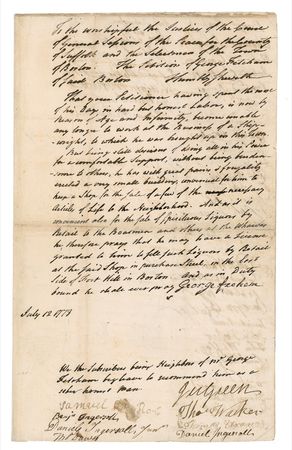 To the worshipful the Justices of the Court
of General Sessions of the Peace for the County
of Suffolk and the Selectmen of the Town
of Boston. The Petition of George Fecham
of said Boston Humbly sheweth
That your Petitioner having spent the most
of his Day in hard but honest Labor, is now by
reason of Age and Infirmity, become unable
any longer to work at the Business of a Ship-
wright, to which he was brought up in this Town
But being still desirous of doing all in his Power
for a comfortable Support, without being burden-
some to others, he has with great pains & frugality
erected a very small building, convenient for him to
keep a Shop for the Sale of some of the necessary
Articles of Life to the Neighborhood. And as it is
convenient also for the Sale of Spirituous Liquors by
Retail to the Boatmen and others at the Wharves
he therefore prays that he may have a License
granted to him to sell such Liquors by Retail
at the said Shop in purchase Street, on the East
Side of Fort Hill in Boston. And as in Duty
bound he shall ever pray George Fecham
July 12. 1773
We the Subscribers being Neighbors of Mr George
Fecham beg leave to recommend him as a
sober honest Man
Samuel
Jer Green
Benja Ingersoll
Thos Walker
Daniel Ingersoll, Junr
Daniel Ingersoll